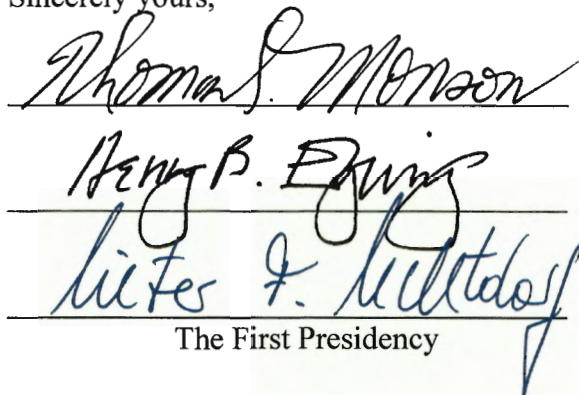 Sincerely yours,
Thomas S. Monson
Henry B. Eyring
Dieter F. Uchtdorf
The First Presidency